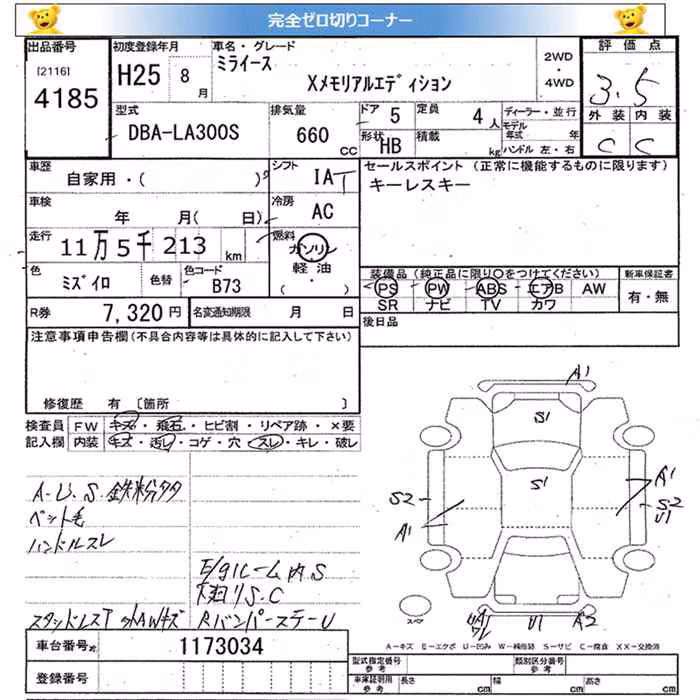 完全ゼロ切りコーナー
出品番号 初度登録年月 車名・グレード 2WD・4WD 評価点
[2116] 4185 H25 8月 ミライース Xメモリアルエディション 3.5
型式 排気量 ドア 5 定員 4人 ディーラー・並行 外装 内装
DBA-LA300S 660cc 形状 HB 積載 kg モデル年式 年 ハンドル 左・右 C C
車歴 シフト セールスポイント (正常に機能するものに限ります)
自家用・( ) IAT キーレスキー
車検 年 月( 日) 冷房 AC
走行 11万5千213km 燃料 ガソリン 軽油 ( ・ )
色 ミズイロ 色替 色コード B73 装備品(純正品に限り○をつけてください) 新車保証書
PS PW ABS エアB AW 有・無
SR ナビ TV カワ
R券 7,320円 名変通知期限 月 日
後日品
注意事項申告欄(不具合内容等は具体的に記入して下さい)
修復歴 有 〔箇所 〕
検査員記入欄 FW キズ・飛石・ヒビ割・リペア跡・×要
内装 キズ・汚レ・コゲ・穴・スレ・キレ・破レ
A1
S1
S1
S2 A1
A1 S2 U1
A-U.S.鉄粉タタ
ペット毛
ハンドルスレ
E/gルーム内S
下廻りS.C
スタッドレスT RバンパーステーU
U1 A2
スペア
A-キズ E-エクボ U-凹み W-補修跡 S-サビ C-腐食 XX-交換済
車台番号 1173034
登録番号
型式指定番号 参考 類別区分番号 参考
車庫証明用 参考 長さ cm 幅 cm 高さ cm